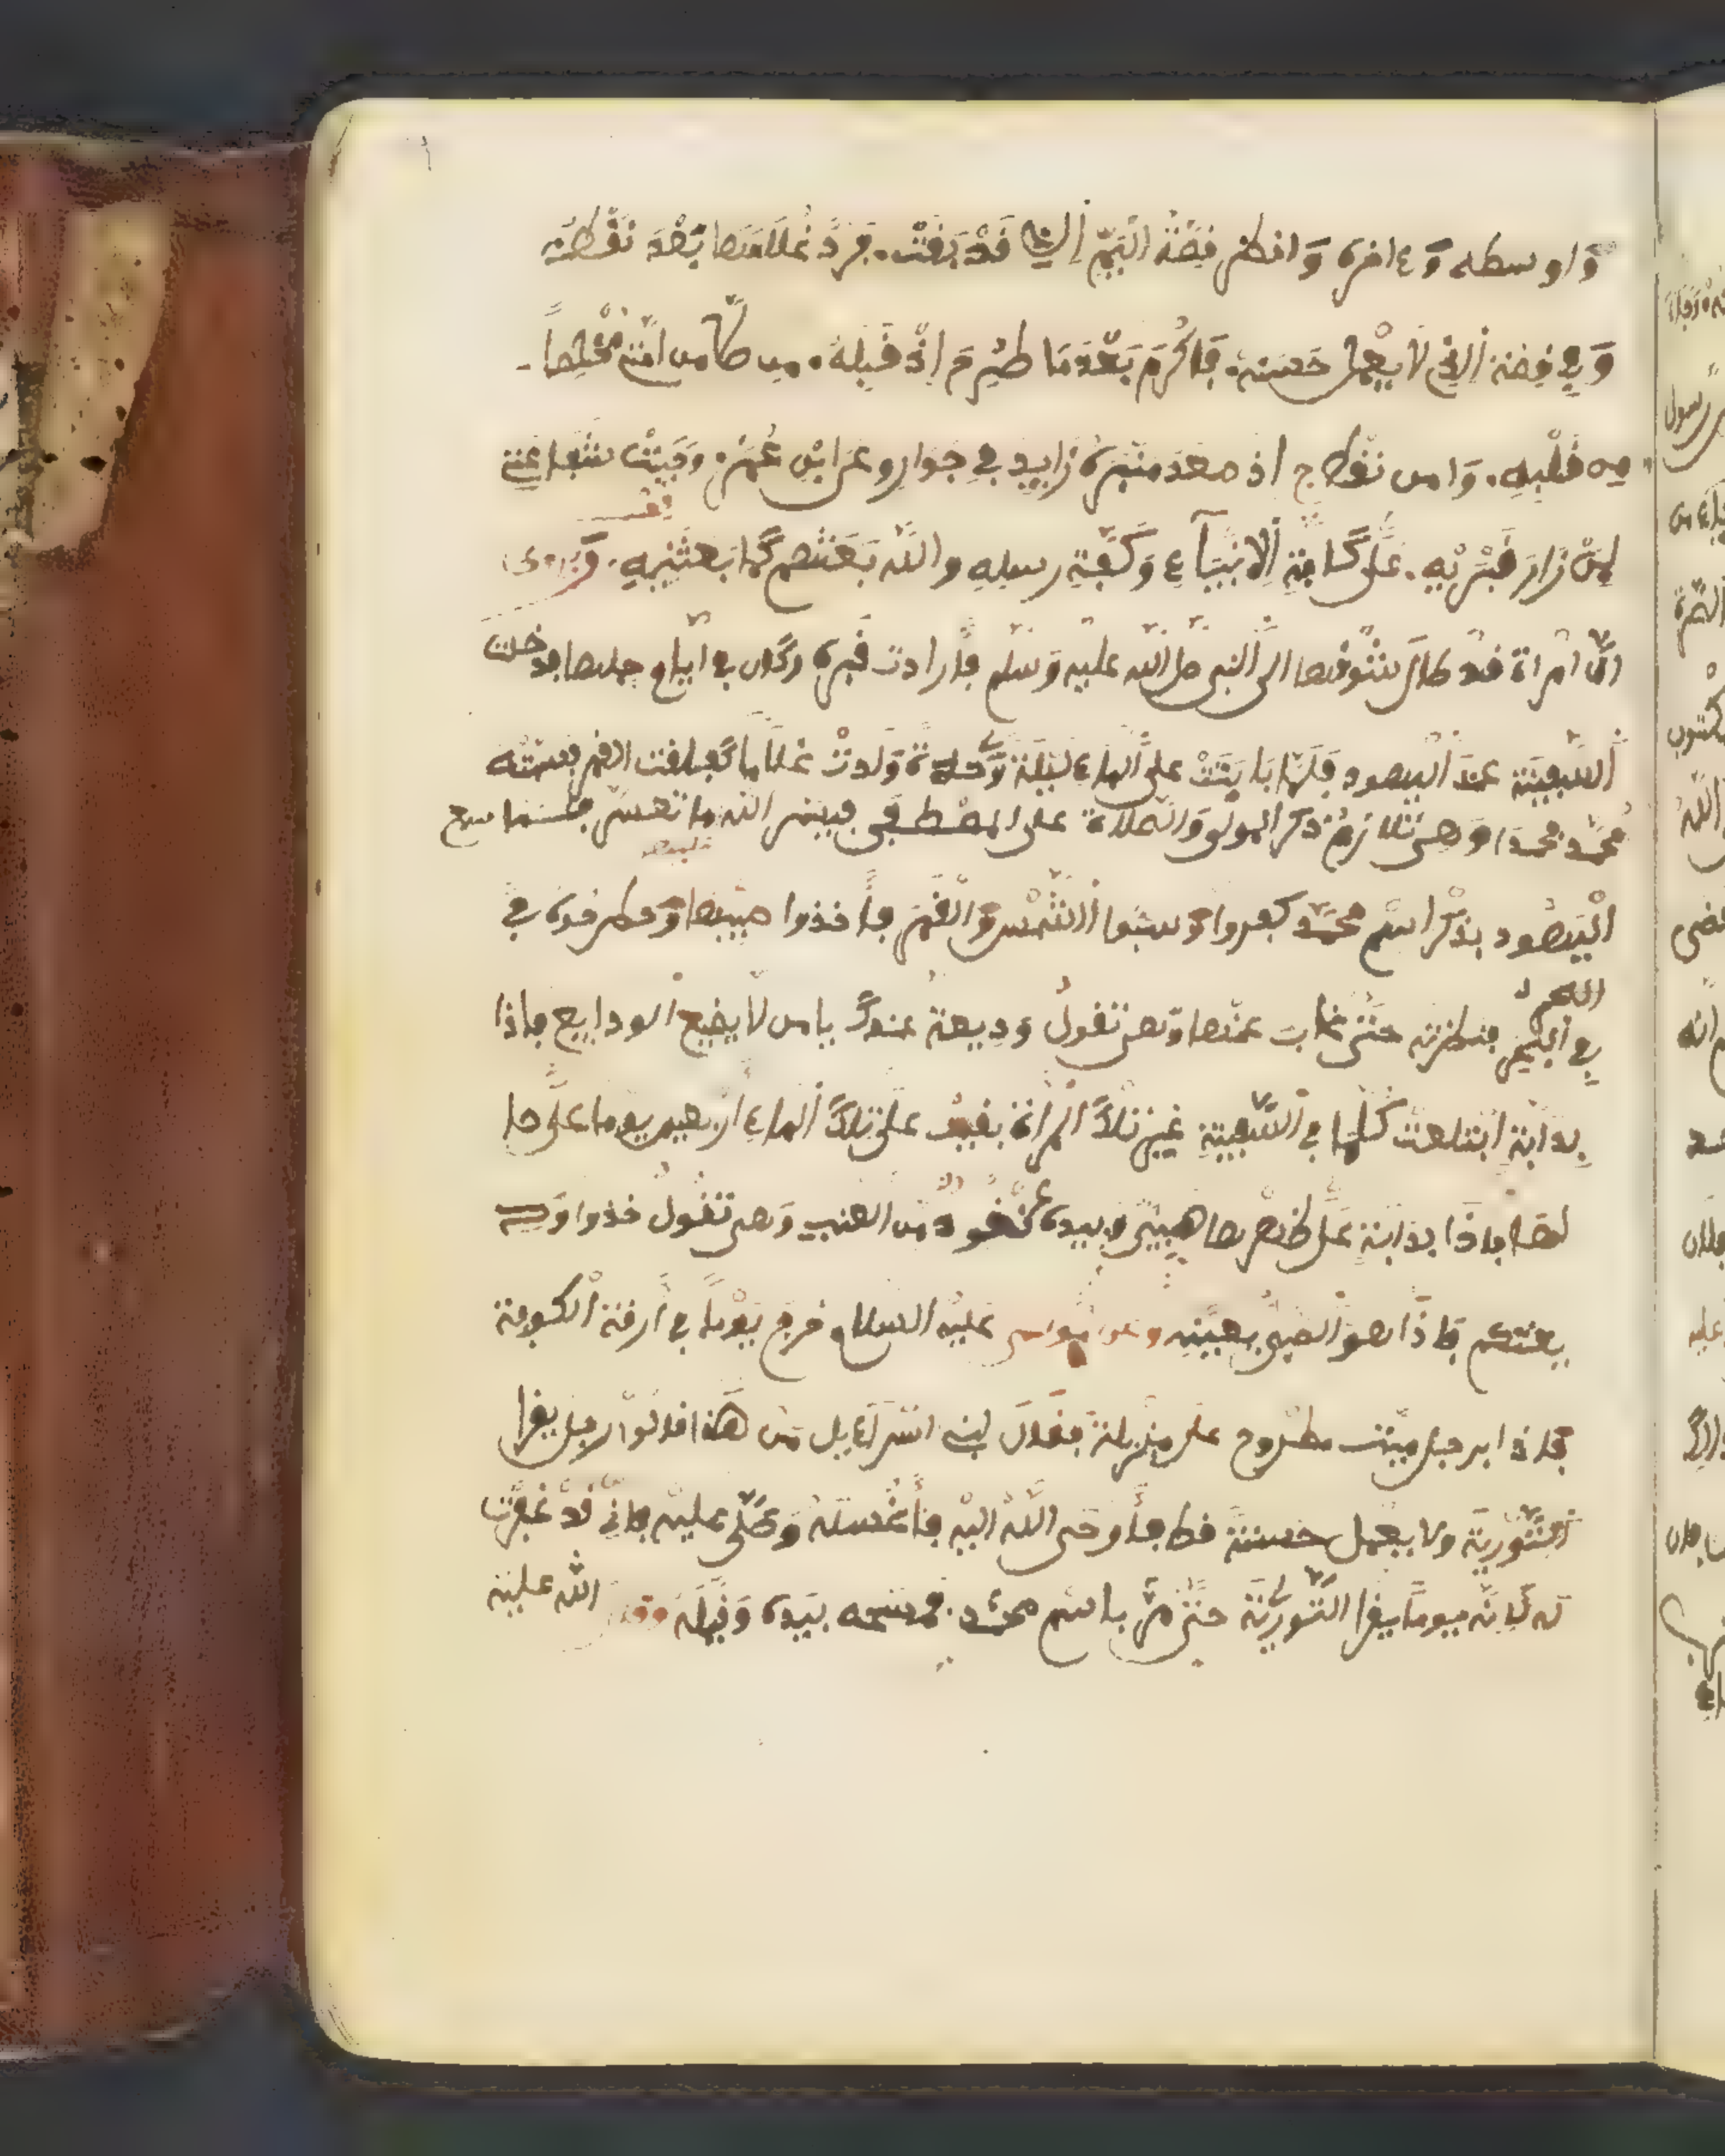 وَاوسطه وَءاخره وَانظر قصّة اليمّ التي قدْ بقتْ. فردّ غلامها بعْدَ
وَفي قصة الذي لا يعْمل حسنة. فاكْرم بعْدَ ما طرح اذْ قبله. من كان من امّته
قلْبه. وَامن اذ صعد منبره زايد في جوار وعن ابْن عُمر. وَجبتْ شفاعتي
لمنْ زارَ قبْري به. علّى كافة الانبياءِ وَكفّة رسله والله بعثهم كما بعثني به. وَيروى
انّ امْراة قدْ طال شوقها الى النبي صلى الله عليه وَسلم فارادت قبره وكان في ايام حملها فدخلت
السّفينة عند اليهود فلمّا باتتْ على الماء ليلة وَّحدة وَلدتْ غلاما كفلقت القمر فسمته
محمّد محمدا وَهي تلازم ذكر المولى وَالصّلاة على المصْطفى فيسر الله ما تعسر فلما سمع
الْيهود بذكر اسْم محمّد كفروا وَسبوا الشّمْس وَالْقمر فأخذوا صبيها وَطرحوه في
اللحم
في البحْر فنظرته حتّى غاب عنها وَهي تقولُ وَديعة عندك يا من لا يضيع الودايع فاذا
بدابّة ابتلعتْ كلّما في السّفينة غير تلك المراة بقيتْ على تلك الماء اربعين يوما على حا
لها فاذا بدابّة على ظهْرها صبيّ وبيده عُنْقود من العنب وَهي تقولُ خذوا وَد
يعتكم فاذَا هوَ الصّبيّ بعيْنه وعن موسى عليْه السلام خرج يوْماً في ازقة الكوفة
فاذا برجل ميّت مطْروح على مزبلة فقال لبني اسْرَاءيل منْ هَذا قالوا رجل يقرا
التّوْرية ولا يعْمل حسنة قط فأوحى اللّه اليْه فأغْسلهُ وَصَلّى عليْه فانّي قدْ غفرْت
له لانّه يوماً يقرا التّوْرية حتّى مرّ باسْم محمّد. فمسحه بيَده وَقبّله الله عليْه